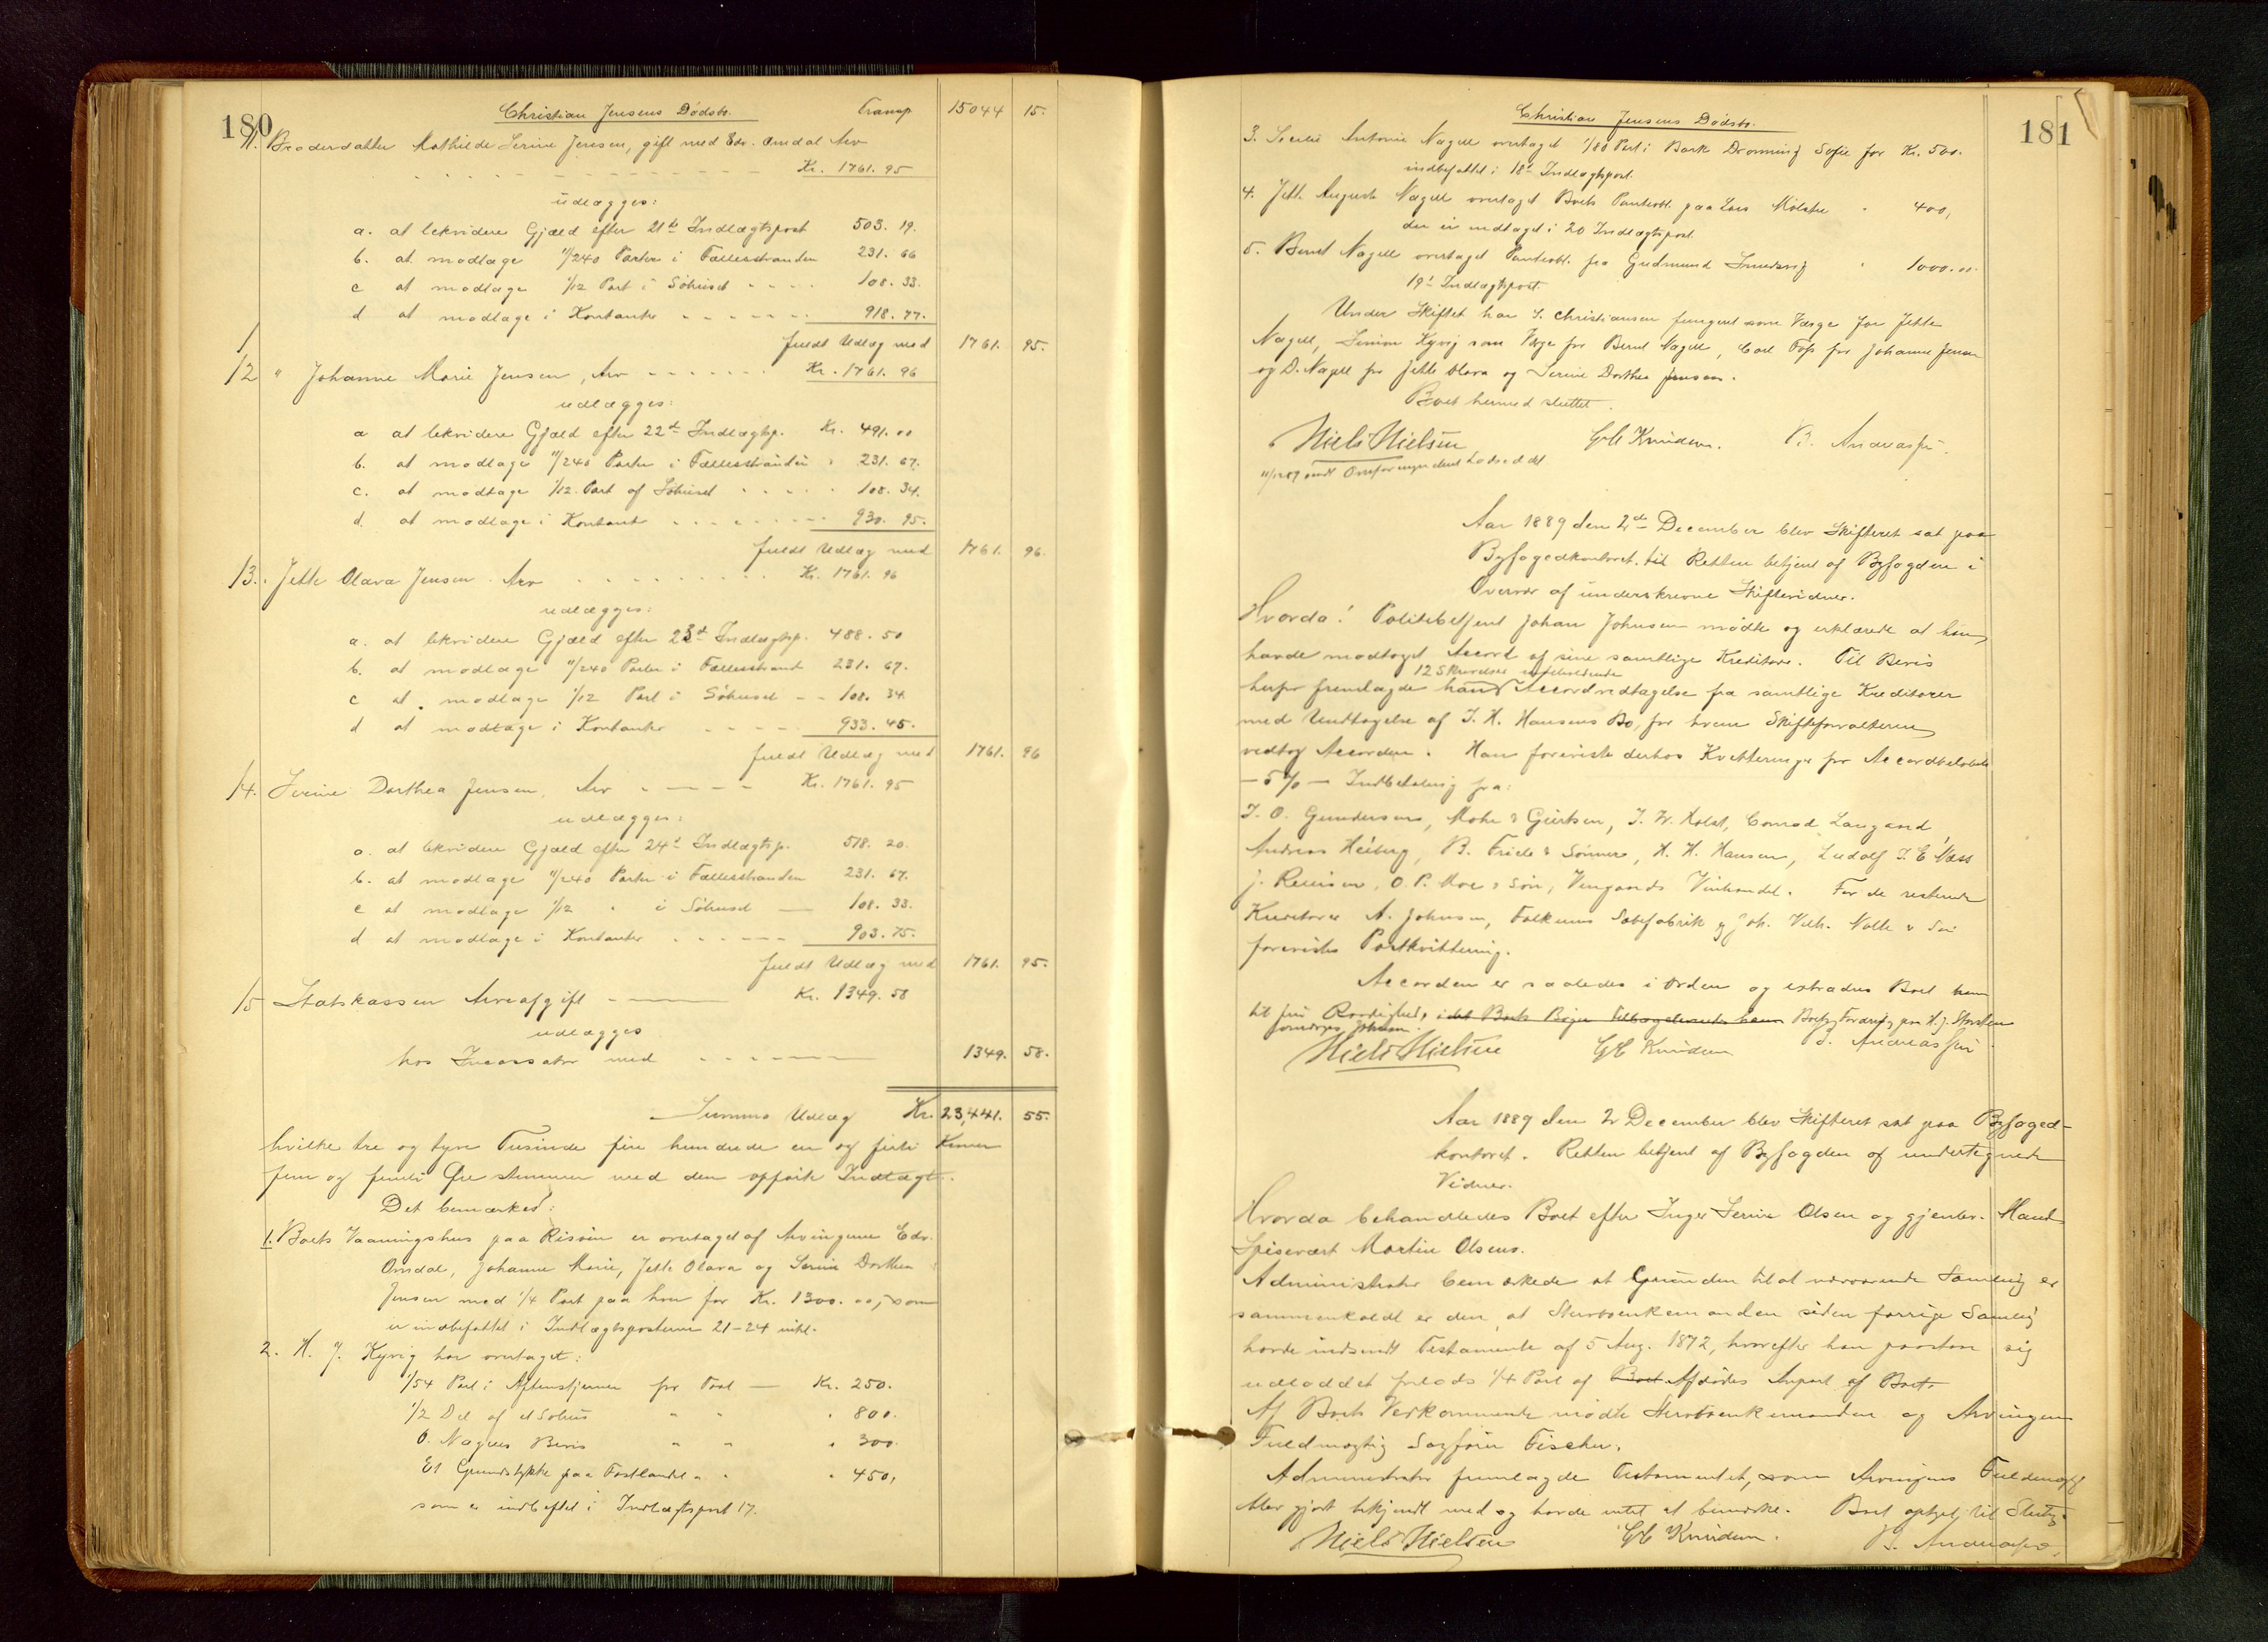 180
Christian Jensens Dødsbo. Transp 15044 15.
11. Broderdatter Mathilde Serine Jensen, gift med Edv. Omdal Arv
Kr. 1761. 95
udlægges:
a. at lekvidere Gjæld efter 21de Indtægtspost 503. 19.
b. at modtage 11/240 Parter i Fællesstranden 231. 66
c at modtage 1/12 Part i Søhuset 108. 33.
d at modtage i Kontanter 918. 77.
fuldt Udlæg med 1761. 95.
12 " Johanne Marie Jensen, Arv Kr. 1761. 96
udlægges:
a at lekvidere Gjæld efter 22d Indtægtsp. Kr. 491. 00
b. at modtage 11/240 Parter i Fællesstranden 231. 67.
c. at modtage 1/12 Part af Søhuset 108. 34.
d. at modtage i Kontant 930. 95.
fuldt Udlæg med 1761. 96.
13. Jette Olava Jensen Arv Kr. 1761. 96
udlægges:
a. at lekvidere Gjæld efter 23d Indtægtsp. 488. 50
b. at modtage 11/240 Parter i Fællesstrand 231. 67.
c at modtage 1/12 Part i Søhuset 108. 34
d at modtage i Kontanter 933. 45.
fuldt Udlæg med 1761. 96
14. Serine Dorthea Jensen, Arv Kr. 1761. 95
udlægges:
a. at lekvidere Gjæld efter 24d Indtægtsp. 518. 20.
b. at modtage 11/240 Parter i Fællesstranden 231. 67.
c at modtage 1/12 " i Søhuset 108. 33.
d at modtage i Kontanter 903. 75.
fuldt Udlæg med 1761. 95.
15 Statskassen Arveafgift Kr. 1349. 58
udlægges
hos Incassator med 1349. 58.
Summa Udlæg Kr. 23,441. 55.
hvilke tre og tyve Tusinde fire hundrede en og firti Kroner
fem og femti Øre stemmer med den opførte Indtægt.
Det bemærkes:
1. Boets Vaaningshus paa Risøen er overtaget af Arvingerne Edv.
Omdal, Johanne Marie, Jette Olava og Serine Dorthea
Jensen med 1/4 Part paa hver for Kr. 1300. 00, som
er indbefattet i Indtægtsposterne 21-24 inkl.
2. H. J. Kyvig har overtaget:
1/54 Part i Aftenstjernen for Kr. 250.
1/2 Del af et Søhus " " " 800.
O. Nagells Bevis " " " 300.
Et Grundstykke paa Fastlandet " " " 450,
som er indbefttet i Indtægtspost 17.
181
Christian Jensens Dødsbo.
3. Antonie Nagell overtaget 1/80 Part i Bark Dronning Sofie for Kr. 500.
indbefattet i 18d Indtægtspost.
4. Jette Auguste Nagell overtaget Boets Panteobl. paa Lars " 400,
der er indtaget i 20 Indtægtspost.
5. Bernt Nagell overtaget Panteobl. fra Gudmund " 1000.00.
19d Indtægtspost.
Under Skiftet har S. Christiansen fungeret som Værge for Jette
Nagell, Simon Kyvig som Værge for Bernt Nagell, Carl for Johanne Jensen
og D. Nagell for Jette Olava og Serine Dorthea Jensen.
Boet hermed sluttet.
Niels Nielsen Knudsen. B. Andreassen
Aar 1889 den 2den December blev Skifteret sat paa
Byfogedkontoret. til Retten betjent af Byfogden i
Overvær af underskrevne Skiftevidner.
Hvorda! Politibetjent Johan Johnsen mødte og erklærede at han
havde modtaget Accord af sine samtlige Kreditorer. Til Bevis
12 Skrivelser indeholdende
herfor fremlagde han Accordvedtagelse fra samtlige Kreditorer
med Undtagelse af J. H. Hansens Bo, for hvem Skifteforvalteren
vedtog Accorden. Han foreviste derhos Kvitteringer for Accordbeløbets
- 5% - Indbetaling fra:
T. O. Gundersen, Mohr & Giertsen, J. W. Holst, Conrad Langaard,
Andreas Heiberg, B. Friele & Sønner, H. H. Hansen, Ludolf J. E. Næss
J. O. P. Moe & Søn, Vingaards Vinhandel. For de resterende
Kreditorer A. Johnsen, Falkums Sæbefabrik og Joh. Vilh. Nolte & Søn
forevistes Postkvittering.
Accorden er saaledes i Orden og extrades Boet ham
til fri Raadighed,
Niels Nielsen Knudsen Andreassen
Aar 1889 den 2 December blev Skifteret sat paa Byfoged-
kontoret. Retten betjent af Byfogden og undertegnede
Vidner.
Hvorda behandledes Boet efter Inger Serine Olsen og gjenlev. Mand
Spisevært Martin Olsens.
Administrator bemærkede at Grunden til at nærværende Samling er
sammenkaldt er den, at Stervboenkemanden siden forrige Samling
havde indsendt Testamente af 5 Aug. 1872, hvorefter han paastod sig
udloddet forlods 1/4 Part af Boet Afdødes Anpart af Boet.
Af Boets Vedkommende mødte Stervboenkemanden og Arvingers
Fuldmægtig Sagfører Fischer.
Administrator fremlagde Testamentet, som Arvingens Fuldmægt
blev gjort bekjendt med og havde intet at bemærke. Boet optget til Slutng.
Niels Nielsen Knudsen. B. Andreassen.